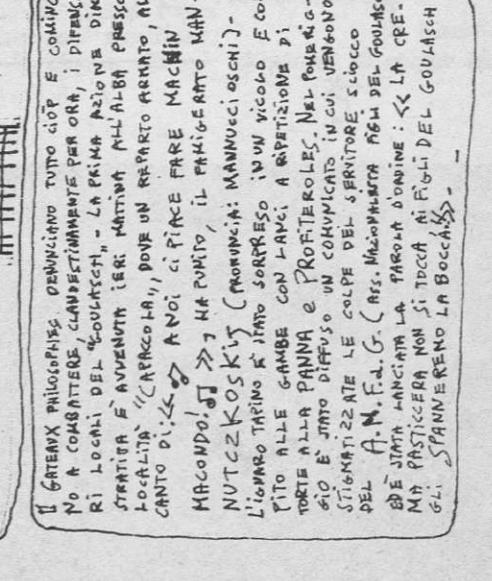 I GATEAUX PHILOSOPHES DENUNCIANO TUTTO CIÒ E COMINC
NO A COMBATTERE, CLANDESTINAMENTE PER ORA, I DIFENS
RI LOCALI DEL "GOULASCH". - LA PRIMA AZIONE DIM
STRATIVA È AVVENUTA IERI MATTINA ALL'ALBA PRESSO
LOCALITÀ "CAPACCOLA", DOVE UN REPARTO ARMATO, AL
CANTO DI: << ♫ A NOI CI PIACE FARE MACHIN
MACONDO! ♫ >>, HA PUNITO, IL FAMIGERATO MAN.
NUTCZKOSKIJ (PRONUNCIA: MANNUCCIOSCHI) -
L'IGNARO TAPINO È STATO SORPRESO IN UN VICOLO E COL
PITO ALLE GAMBE CON LANCI A RIPETIZIONE DI
TORTE ALLA PANNA e PROFITEROLES. NEL POMERIG-
GIO È STATO DIFFUSO UN COMUNICATO IN CUI VENGONO
STIGMATIZZATE LE COLPE DEL SERVITORE SCIOCCO
DEL A.N.F.d.G. (ASS. NAZIONALISTA FIGLI DEL GOULASC
ED È STATA LANCIATA LA PAROLA D'ORDINE: << LA CRE-
MA PASTICCERA NON SI TOCCA AI FIGLI DEL GOULASCH
GLI SPANNEREMO LA BOCCA!>> -